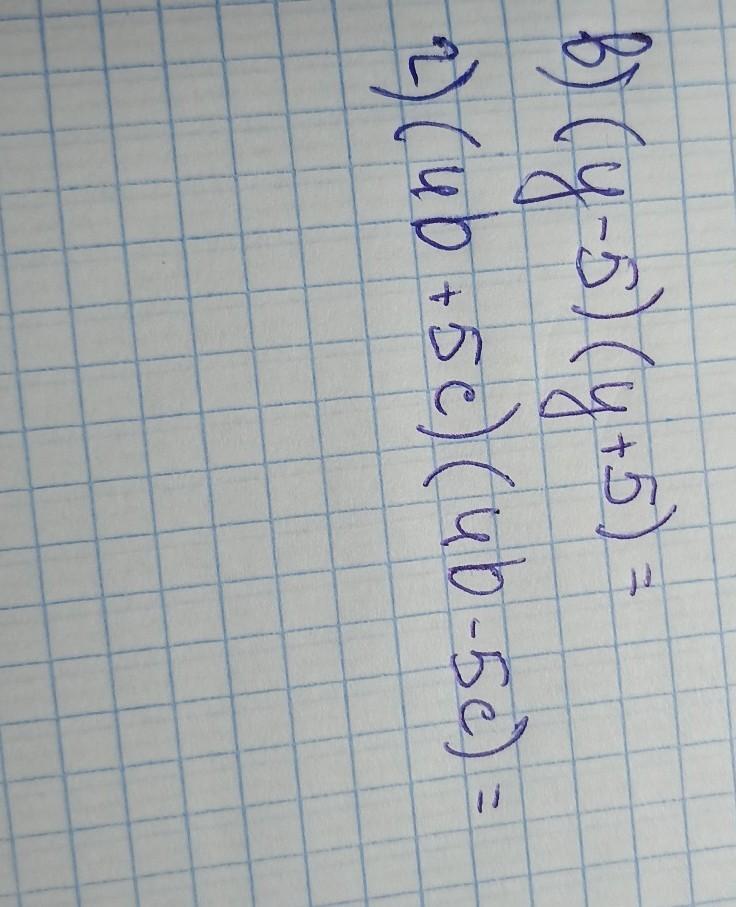 в) (y-5)(y+5)=
г) (4b+5c)(4b-5c)=